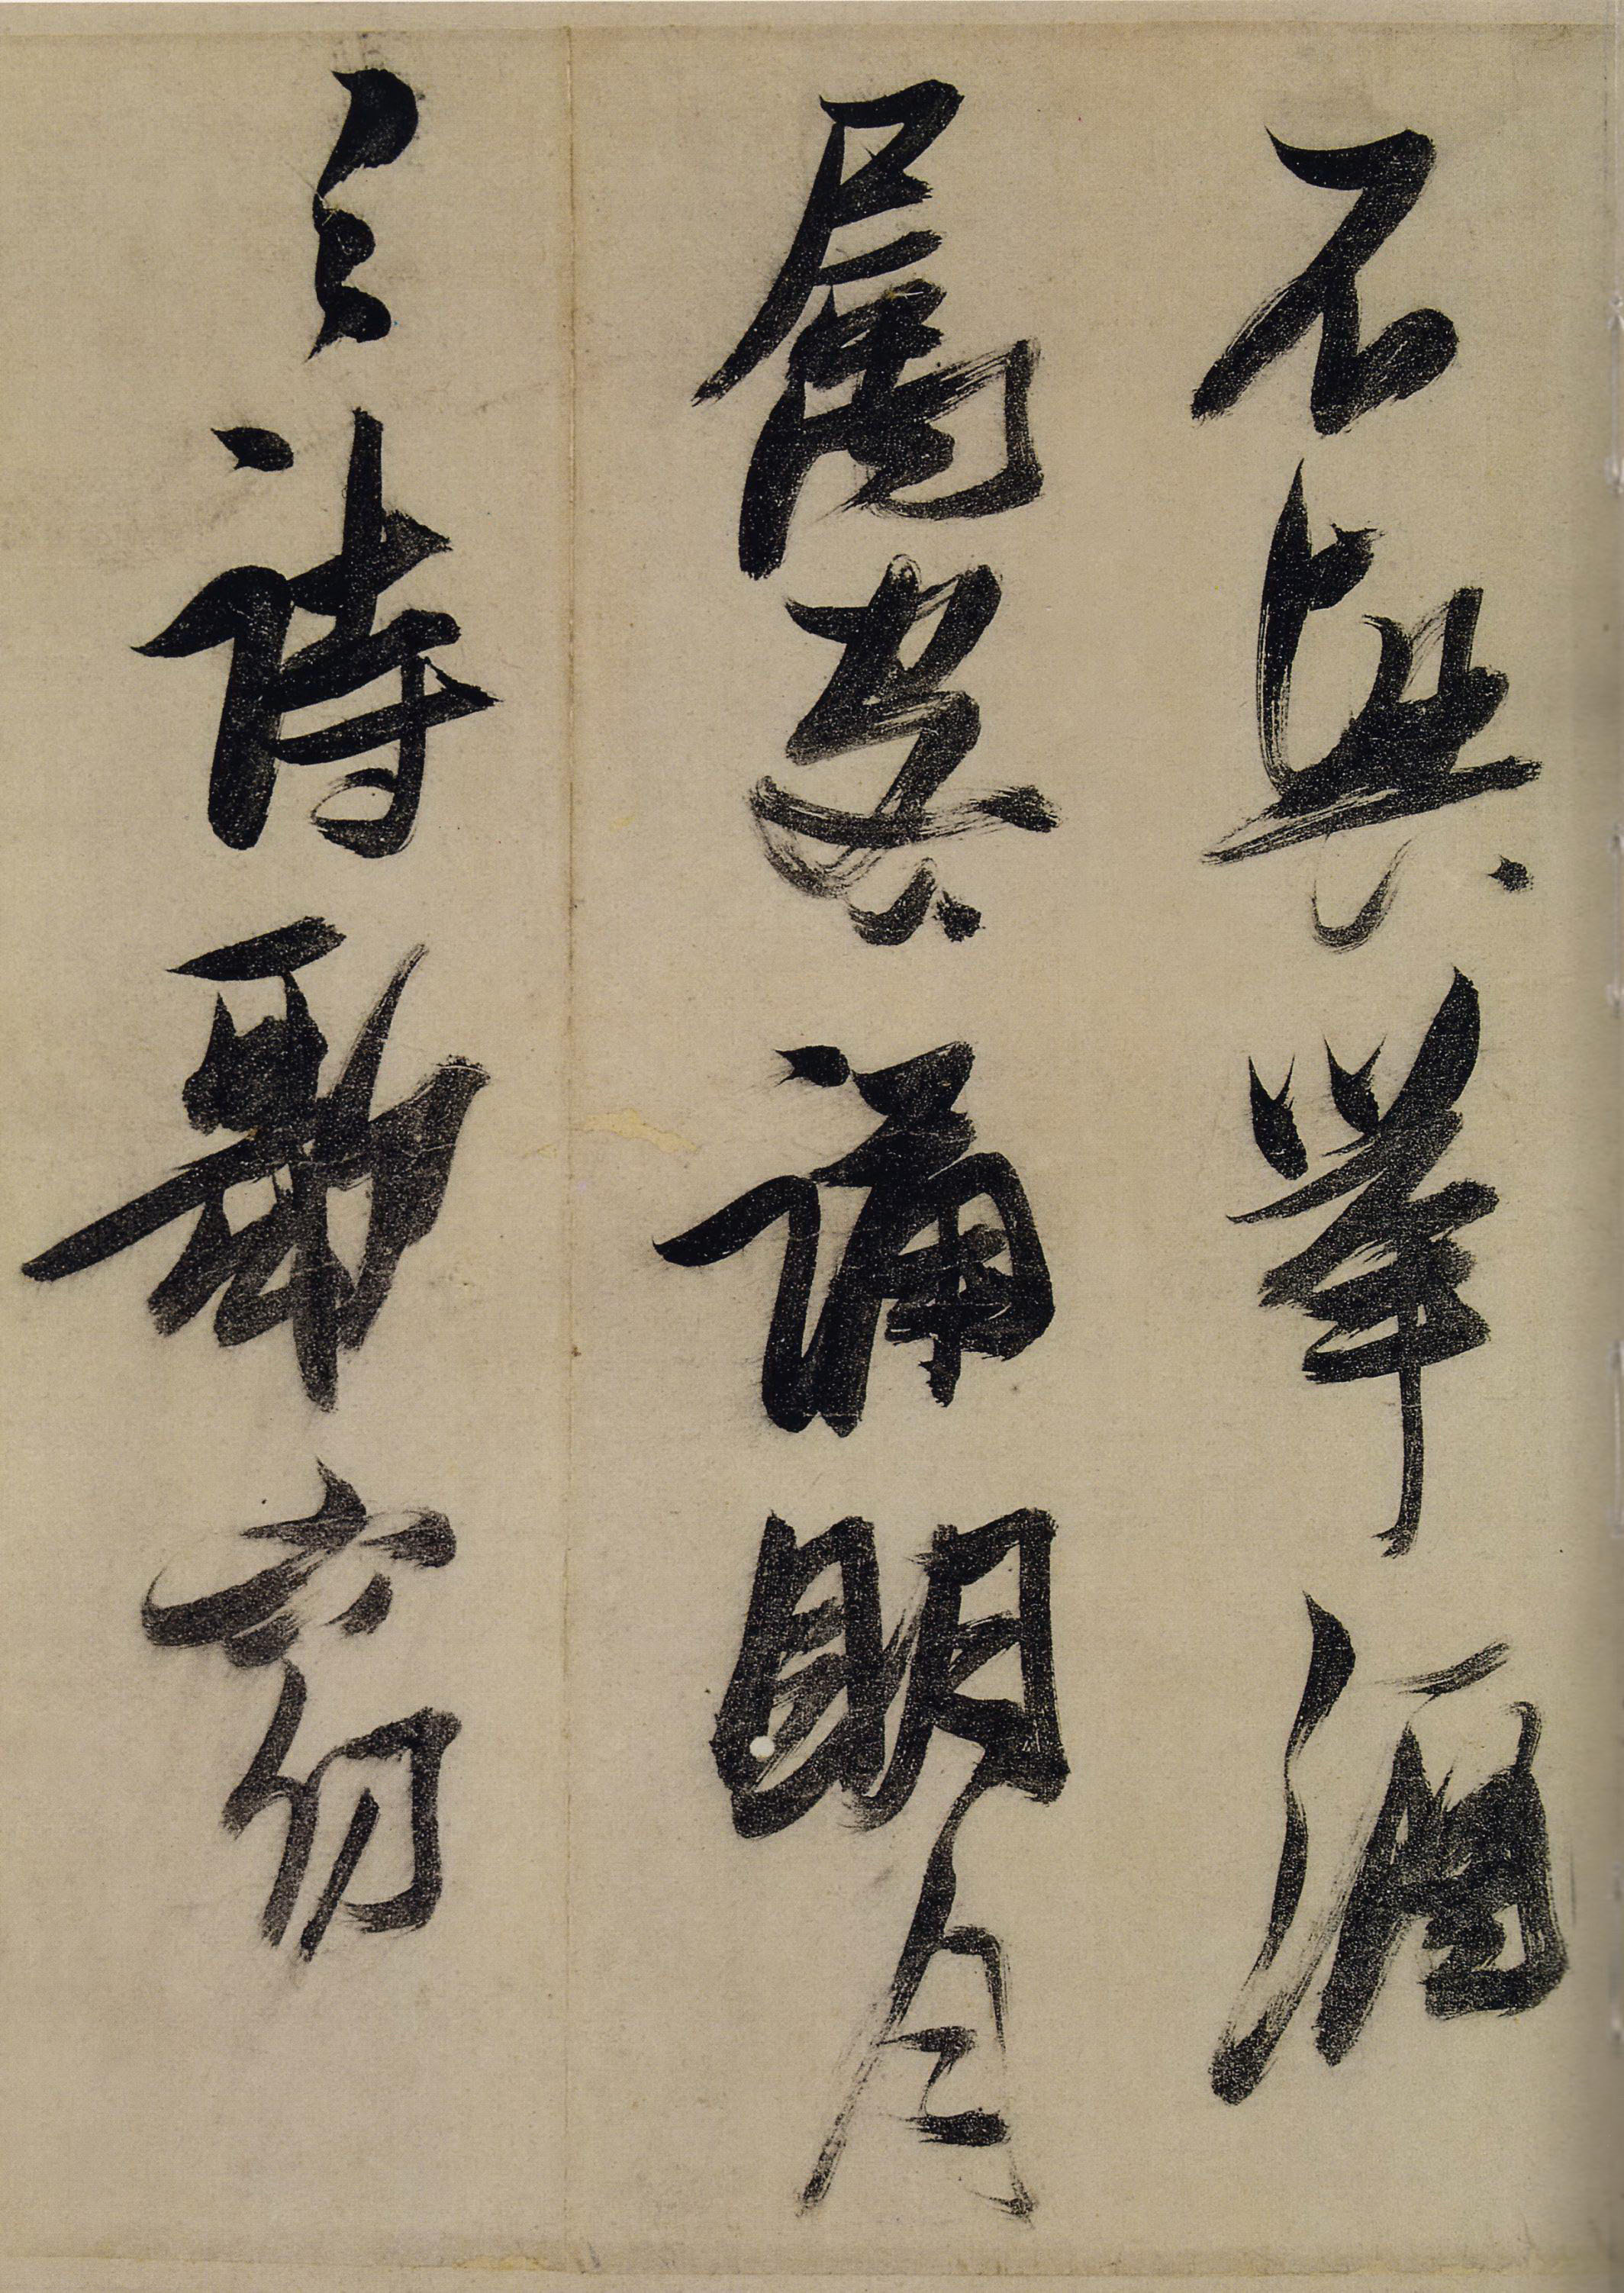 不興舉酒
屬客誦明月
之詩歌窈